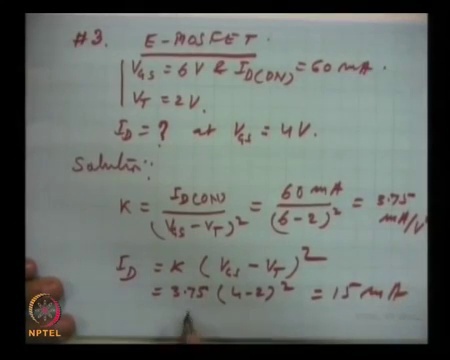 #3. E-MOSFET.
V_GS = 6V & I_D(ON) = 60 mA.
V_T = 2V.
I_D = ? at V_GS = 4V.
Solution:
K = I_D(ON) / (V_GS - V_T)^2 = 60 mA / (6-2)^2 = 3.75 mA/V
I_D = K (V_GS - V_T)^2
= 3.75 (4-2)^2 = 15 mA
NPTEL